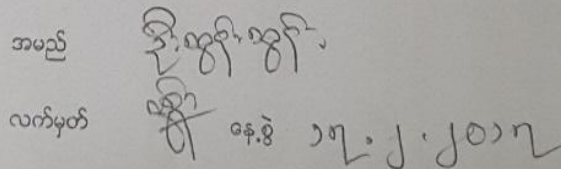 အမည် ဦးထွန်းထွန်း
လက်မှတ် နေ့စွဲ ၁၇.၂.၂၀၁၇